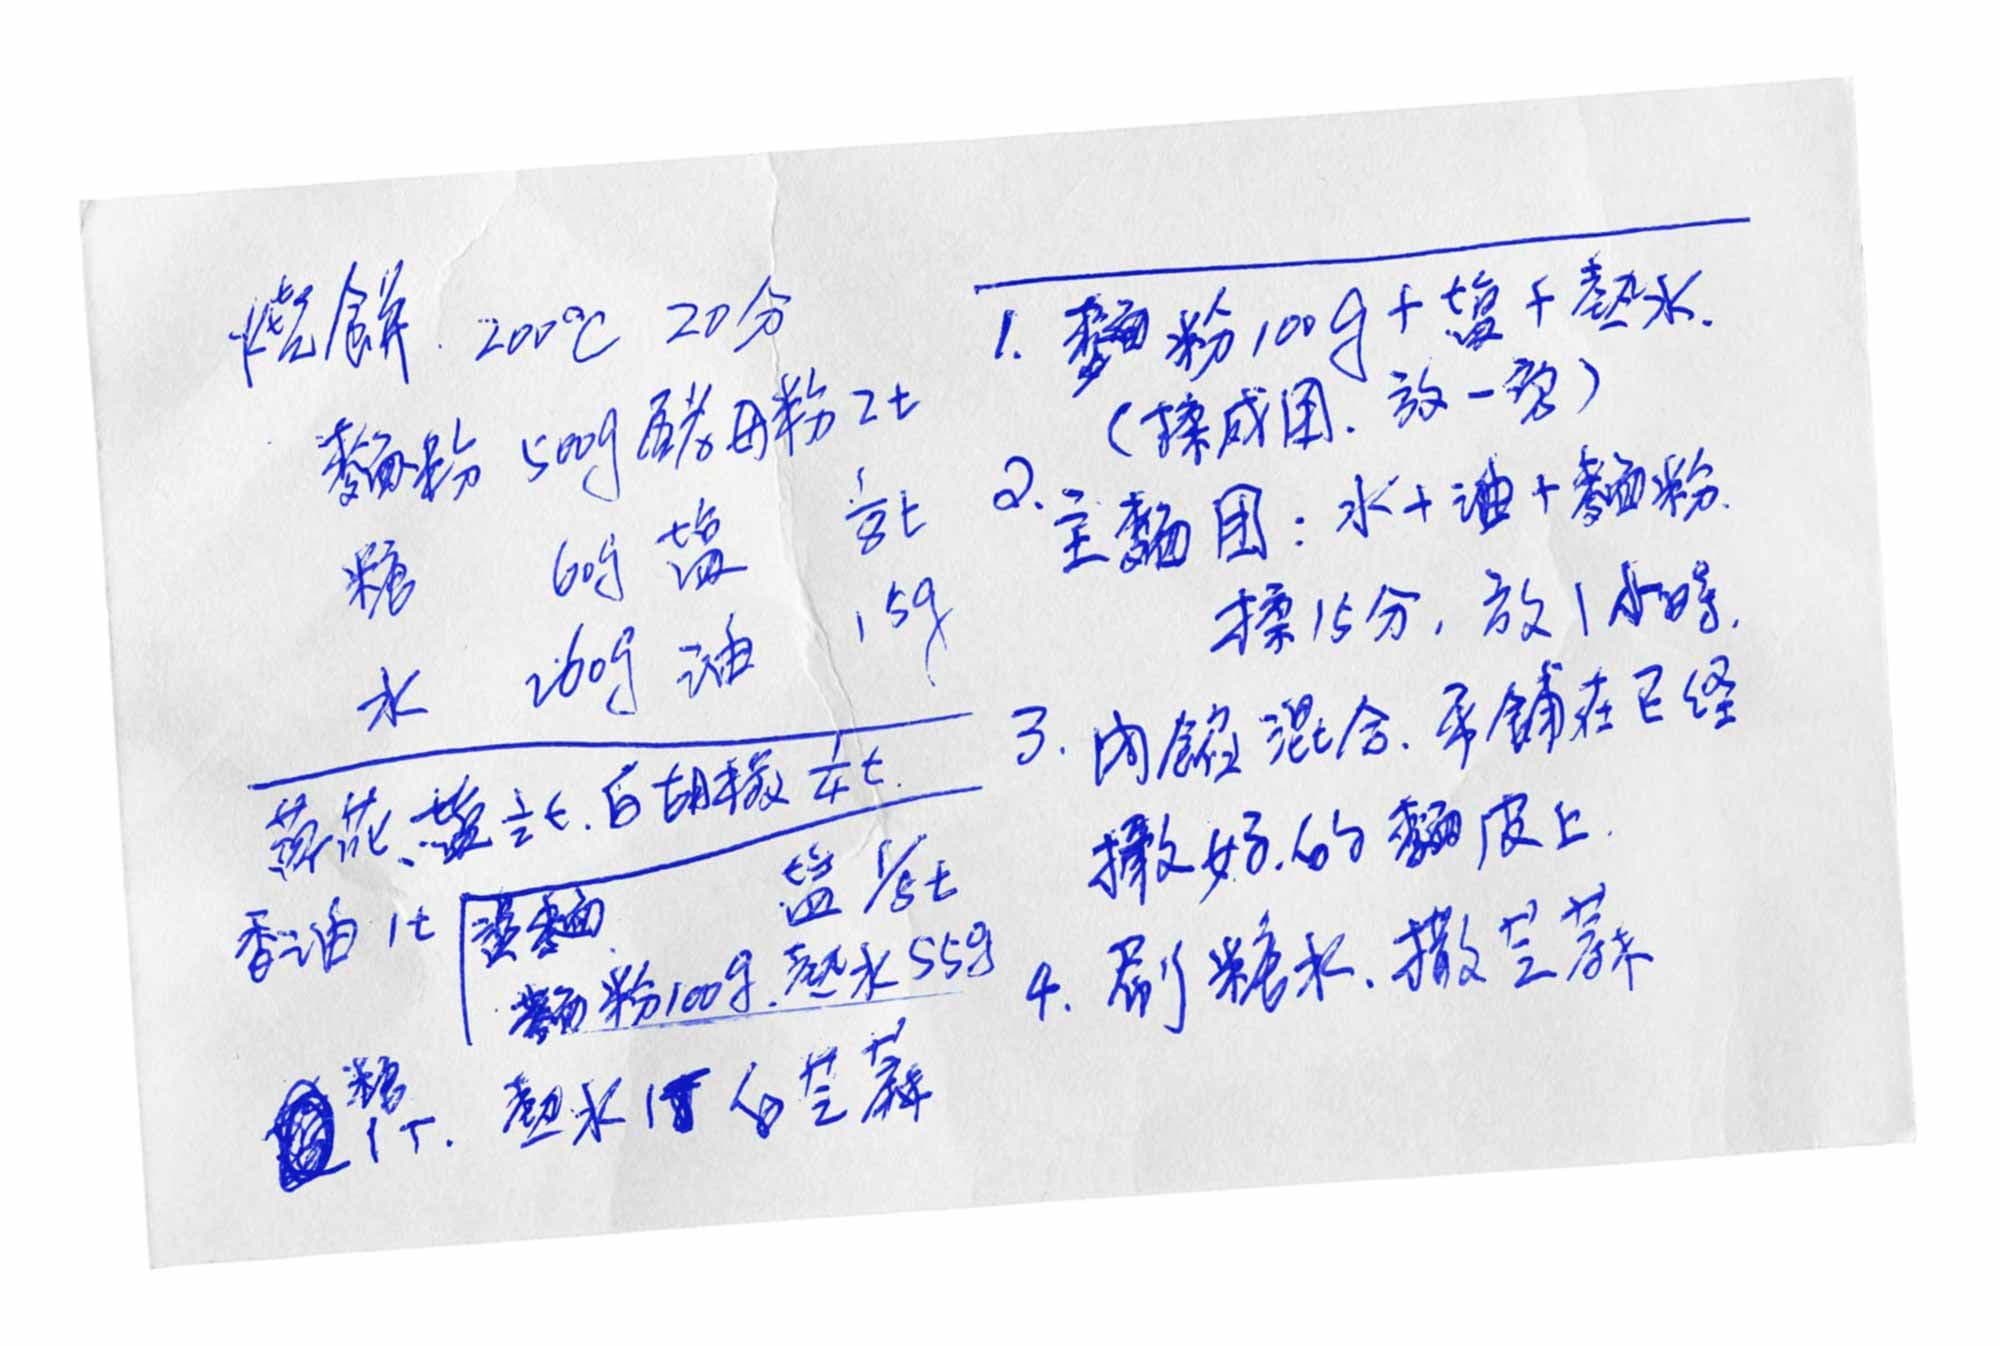 燒餅. 200℃ 20分
麵粉 500g 酵母粉 2t
糖 60g 塩 1/8t
水 260g 油 15g
葱花、塩 1/2t. 白胡椒 1/4t.
香油 1t
烫麵. 塩 1/8t
麵粉100g. 熱水55g
糖 1T. 熱水 1T 白芝蔴
1. 麵粉100g+塩+熱水.
(揉成团. 放一旁)
2. 主麵团: 水+油+麵粉.
揉15分, 放1小時.
3. 内餡混合. 平舖在已经
擀好的麵皮上.
4. 刷糖水. 撒芝蔴